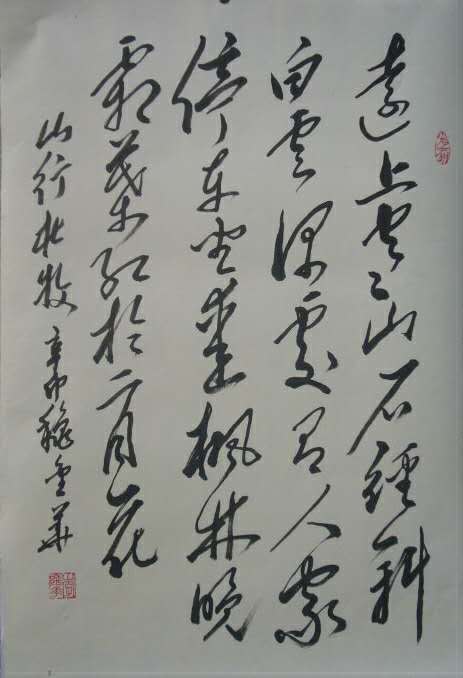 遠上寒山石徑斜
白雲深處有人家
停車坐愛楓林晚
霜葉紅於二月花
山行杜牧 辛卯 金華